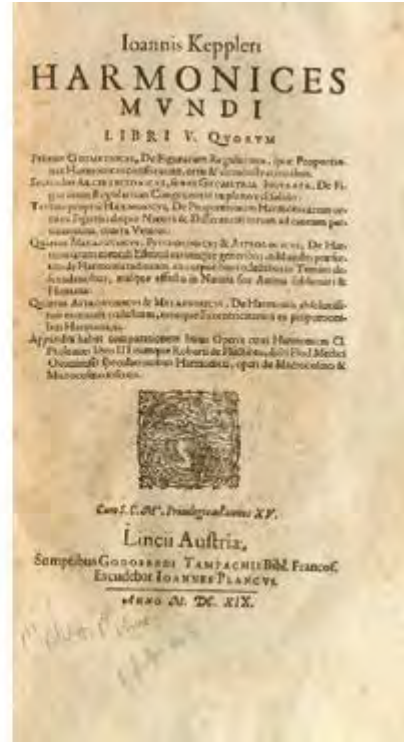 Ioannis Keppleri
HARMONICES
MVNDI
LIBRI V. QVORVM
Primus GEOMETRICUS, De Figurarum Regularium, quæ Proportio-
nes Harmonicas constituunt, ortu & demonstrationibus.
Secundus ARCHITECTONICUS, seu ex GEOMETRIA FIGURATA, De Fi-
gurarum Regularium Congruentia in plano vel solido:
Tertius proprie HARMONICUS, De Proportionum Harmonicarum or-
tu ex Figuris; deque Natura & Differentiis rerum ad cantum per-
tinentium, contra Veteres:
Quartus METAPHYSICUS, PSYCHOLOGICUS & ASTROLOGICUS, De Har-
moniarum mentali Essentia earumque generibus in Mundo; præser-
tim de Harmonia radiorum, ex corporibus cœlestibus in Terram de-
scendentibus, eiusque effectu in Natura seu Anima sublunari &
Humana:
Quintus ASTRONOMICUS & METAPHYSICUS, De Harmoniis absolutissi-
mis motuum cœlestium, ortuque Eccentricitatum ex proportioni-
bus Harmonicis.
Appendix habet comparationem huius Operis cum Harmonices Cl.
Ptolemæi libro III cumque Roberti de Fluctibus, dicti Flud. Medici
Oxoniensis speculationibus Harmonicis, operi de Macrocosmo &
Microcosmo insertis.
Cum S. C. Mtis. Privilegio ad annos XV.
Lincii Austriæ,
Sumptibus GODOFREDI TAMPACHII Bibl. Francof.
Excudebat IOANNES PLANCVS.
ANNO M. DC. XIX.